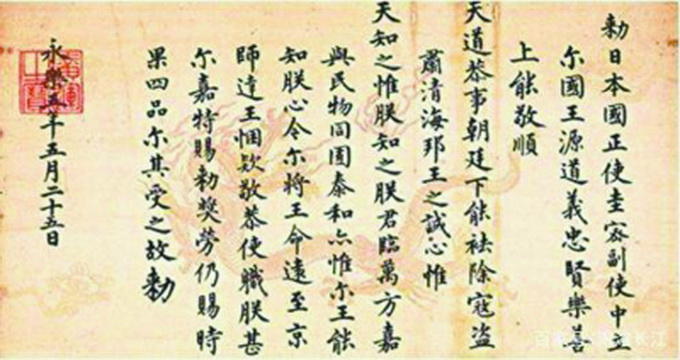 勅日本國正使圭密副使中立
尔國王源道義忠賢樂善
上能敬順
天道恭事朝廷下能袪除寇盗
肅清海邦王之誠心惟
天知之惟朕知之朕君臨萬方嘉
與民物同圍泰和亦惟尔王能
知朕心今尔将王命遠至京
師達王悃欵敬恭使職朕甚
尔嘉特賜勅奬勞仍賜時
果四品尔其受之故勅
永樂五年五月二十五日